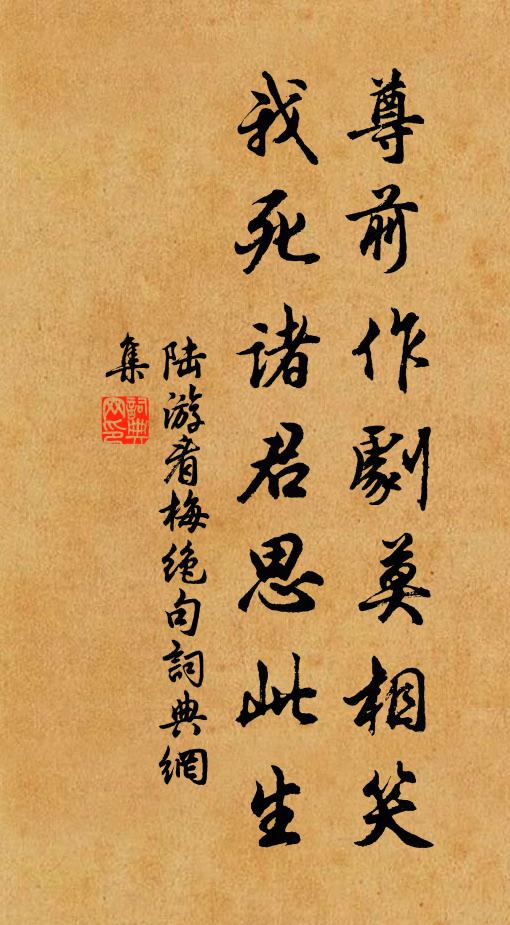 尊前作劇莫相笑
我死諸君思此生
陆游看梅绝句詞典網
集
詞典網印